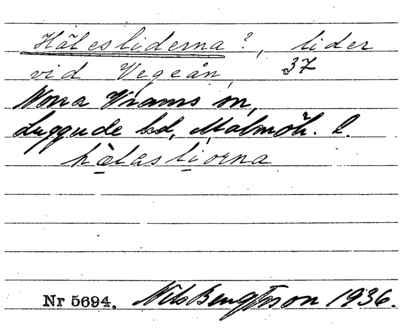 Hälesliderna?, lider
vid Vegeån, 37
Norra Vrams sn,
Luggude hd, Malmöh. l.
hälasliorna
Nr 5694. Nils Bengtsson 1936.